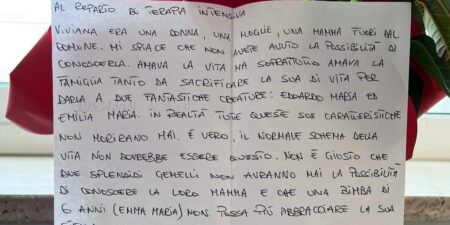 AL REPARTO DI TERAPIA INTENSIVA
VIVIANA ERA UNA DONNA, UNA MOGLIE, UNA MAMMA FUORI DAL
COMUNE. MI SPIACE CHE NON AVETE AVUTO LA POSSIBILITÀ DI
CONOSCERLA. AMAVA LA VITA MA SOPRATTUTTO AMAVA LA
FAMIGLIA TANTO DA SACRIFICARE LA SUA DI VITA PER
DARLA A DUE FANTASTICHE CREATURE: EDOARDO MARIA ED
EMILIA MARIA. IN REALTÀ TUTE QUESTE SUE CARATTERISTICHE
NON MORIRANO MAI. È VERO, IL NORMALE SCHEMA DELLA
VITA NON DOVREBBE ESSERE QUESTO. NON È GIUSTO CHE
DUE SPLENDIDI GEMELLI NON AVRANNO MAI LA POSSIBILITÀ
DI CONOSCERE LA LORO MAMMA E CHE UNA BIMBA DI
6 ANNI (EMMA MARIA) NON POSSA PIÙ ABBRACCIARE LA SUA